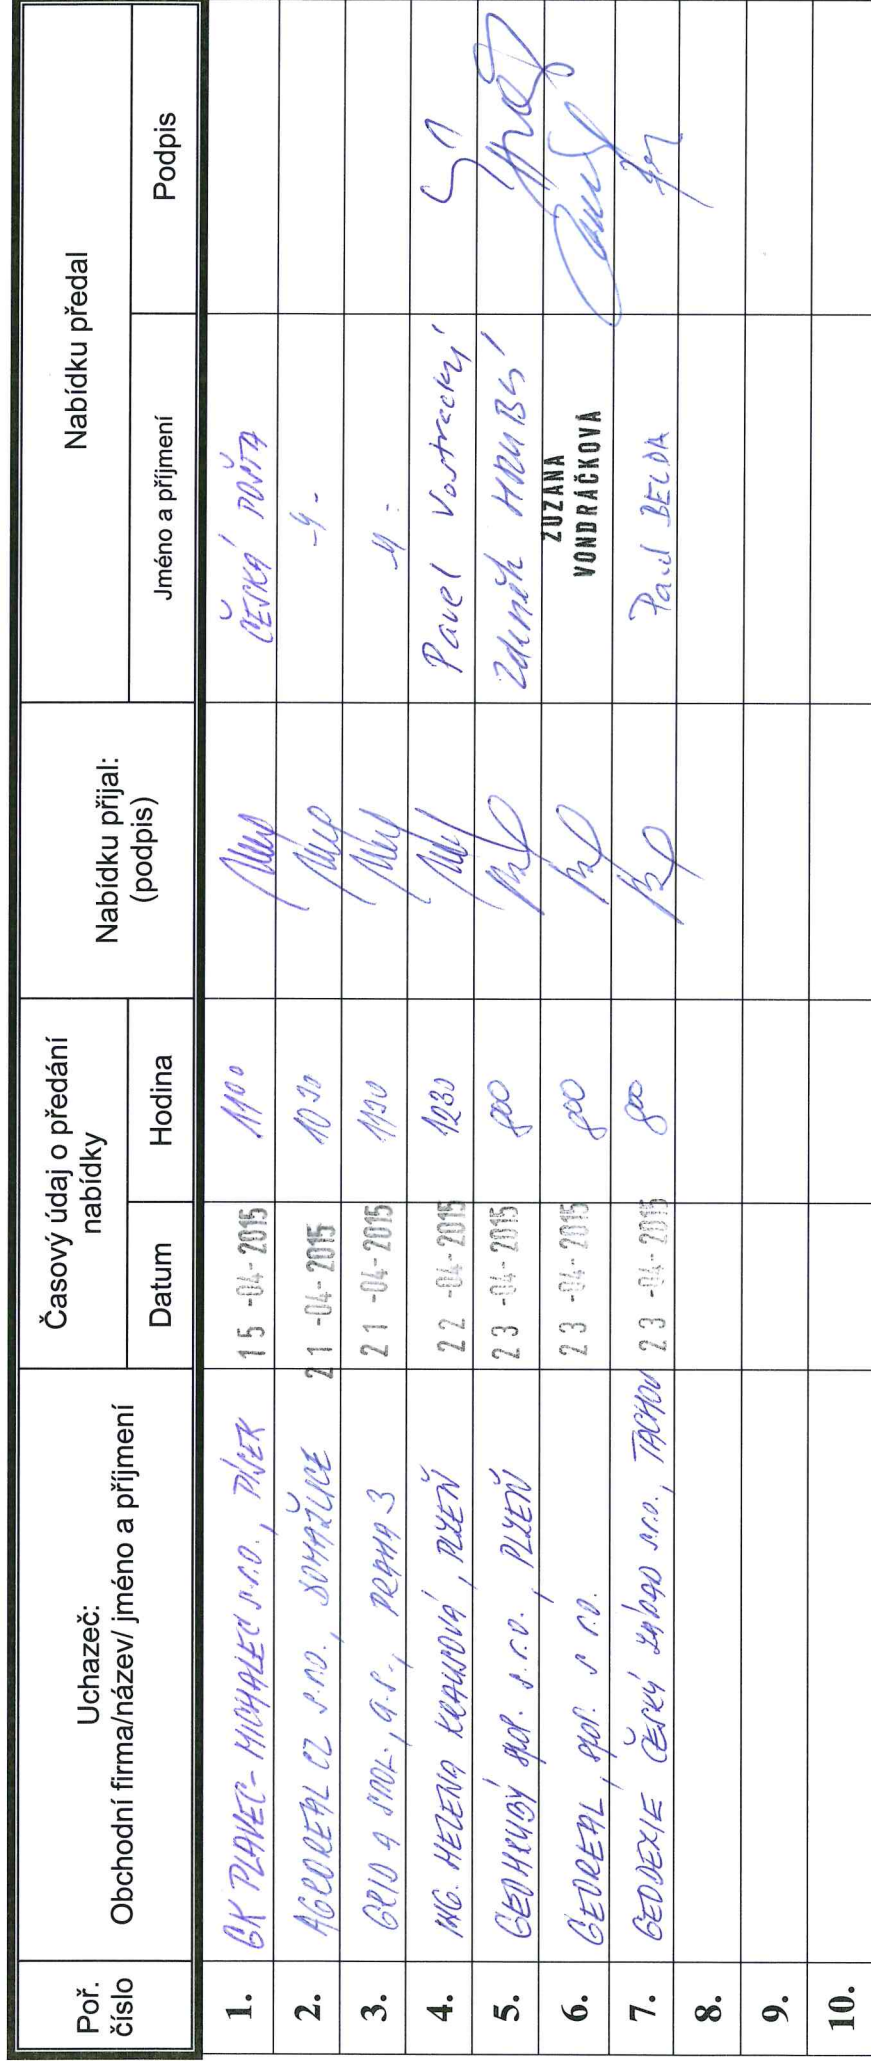 Poř. číslo
Uchazeč:
Obchodní firma/název/ jméno a příjmení
Časový údaj o předání
nabídky
Datum
Hodina
Nabídku přijal:
(podpis)
Nabídku předal
Jméno a příjmení
Podpis
1. GK PLAVEC-MICHALEC s.r.o., PÍSEK 15 -04- 2015 1100 ČESKÁ POŠTA
2. AGROREAL CZ s.r.o., DOMAŽLICE 21 -04- 2015 1030 -"-
3. GRID a spol., a.s., PRAHA 3 21 -04- 2015 1130 -"-
4. ING. HELENA KRAUSOVÁ, PLZEŇ 22 -04- 2015 1230 Pavel Vostracký
5. GEOHRUBÝ spol. s.r.o., PLZEŇ 23 -04- 2015 800 Zdeněk HRUBÝ
6. GEOREAL, spol. s r.o. 23 -04- 2015 800 ZUZANA
VONDRÁČKOVÁ
7. GEODEZIE ČESKÝ ZÁPAD s.r.o., TACHOV 23 -04- 2015 800 Pavel BELDA
8.
9.
10.